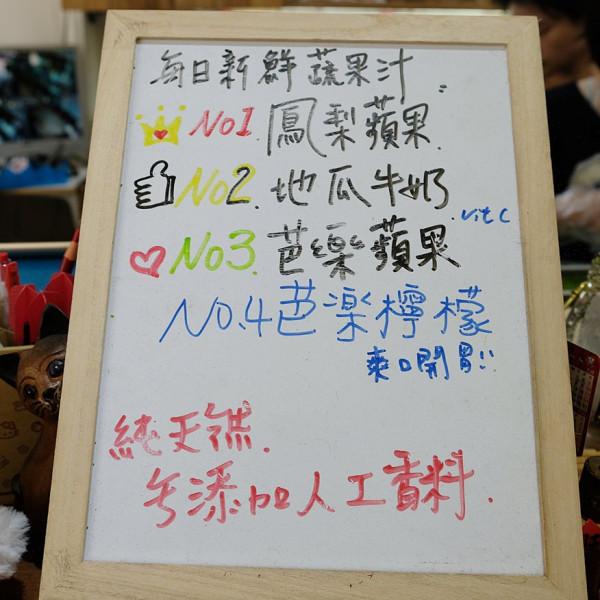 每日新鮮蔬果汁:
No1. 鳳梨蘋果.
No2. 地瓜牛奶.
Vit C
No3. 芭樂蘋果
No.4 芭樂檸檬
爽口開胃!!
純天然.
無添加人工香料.